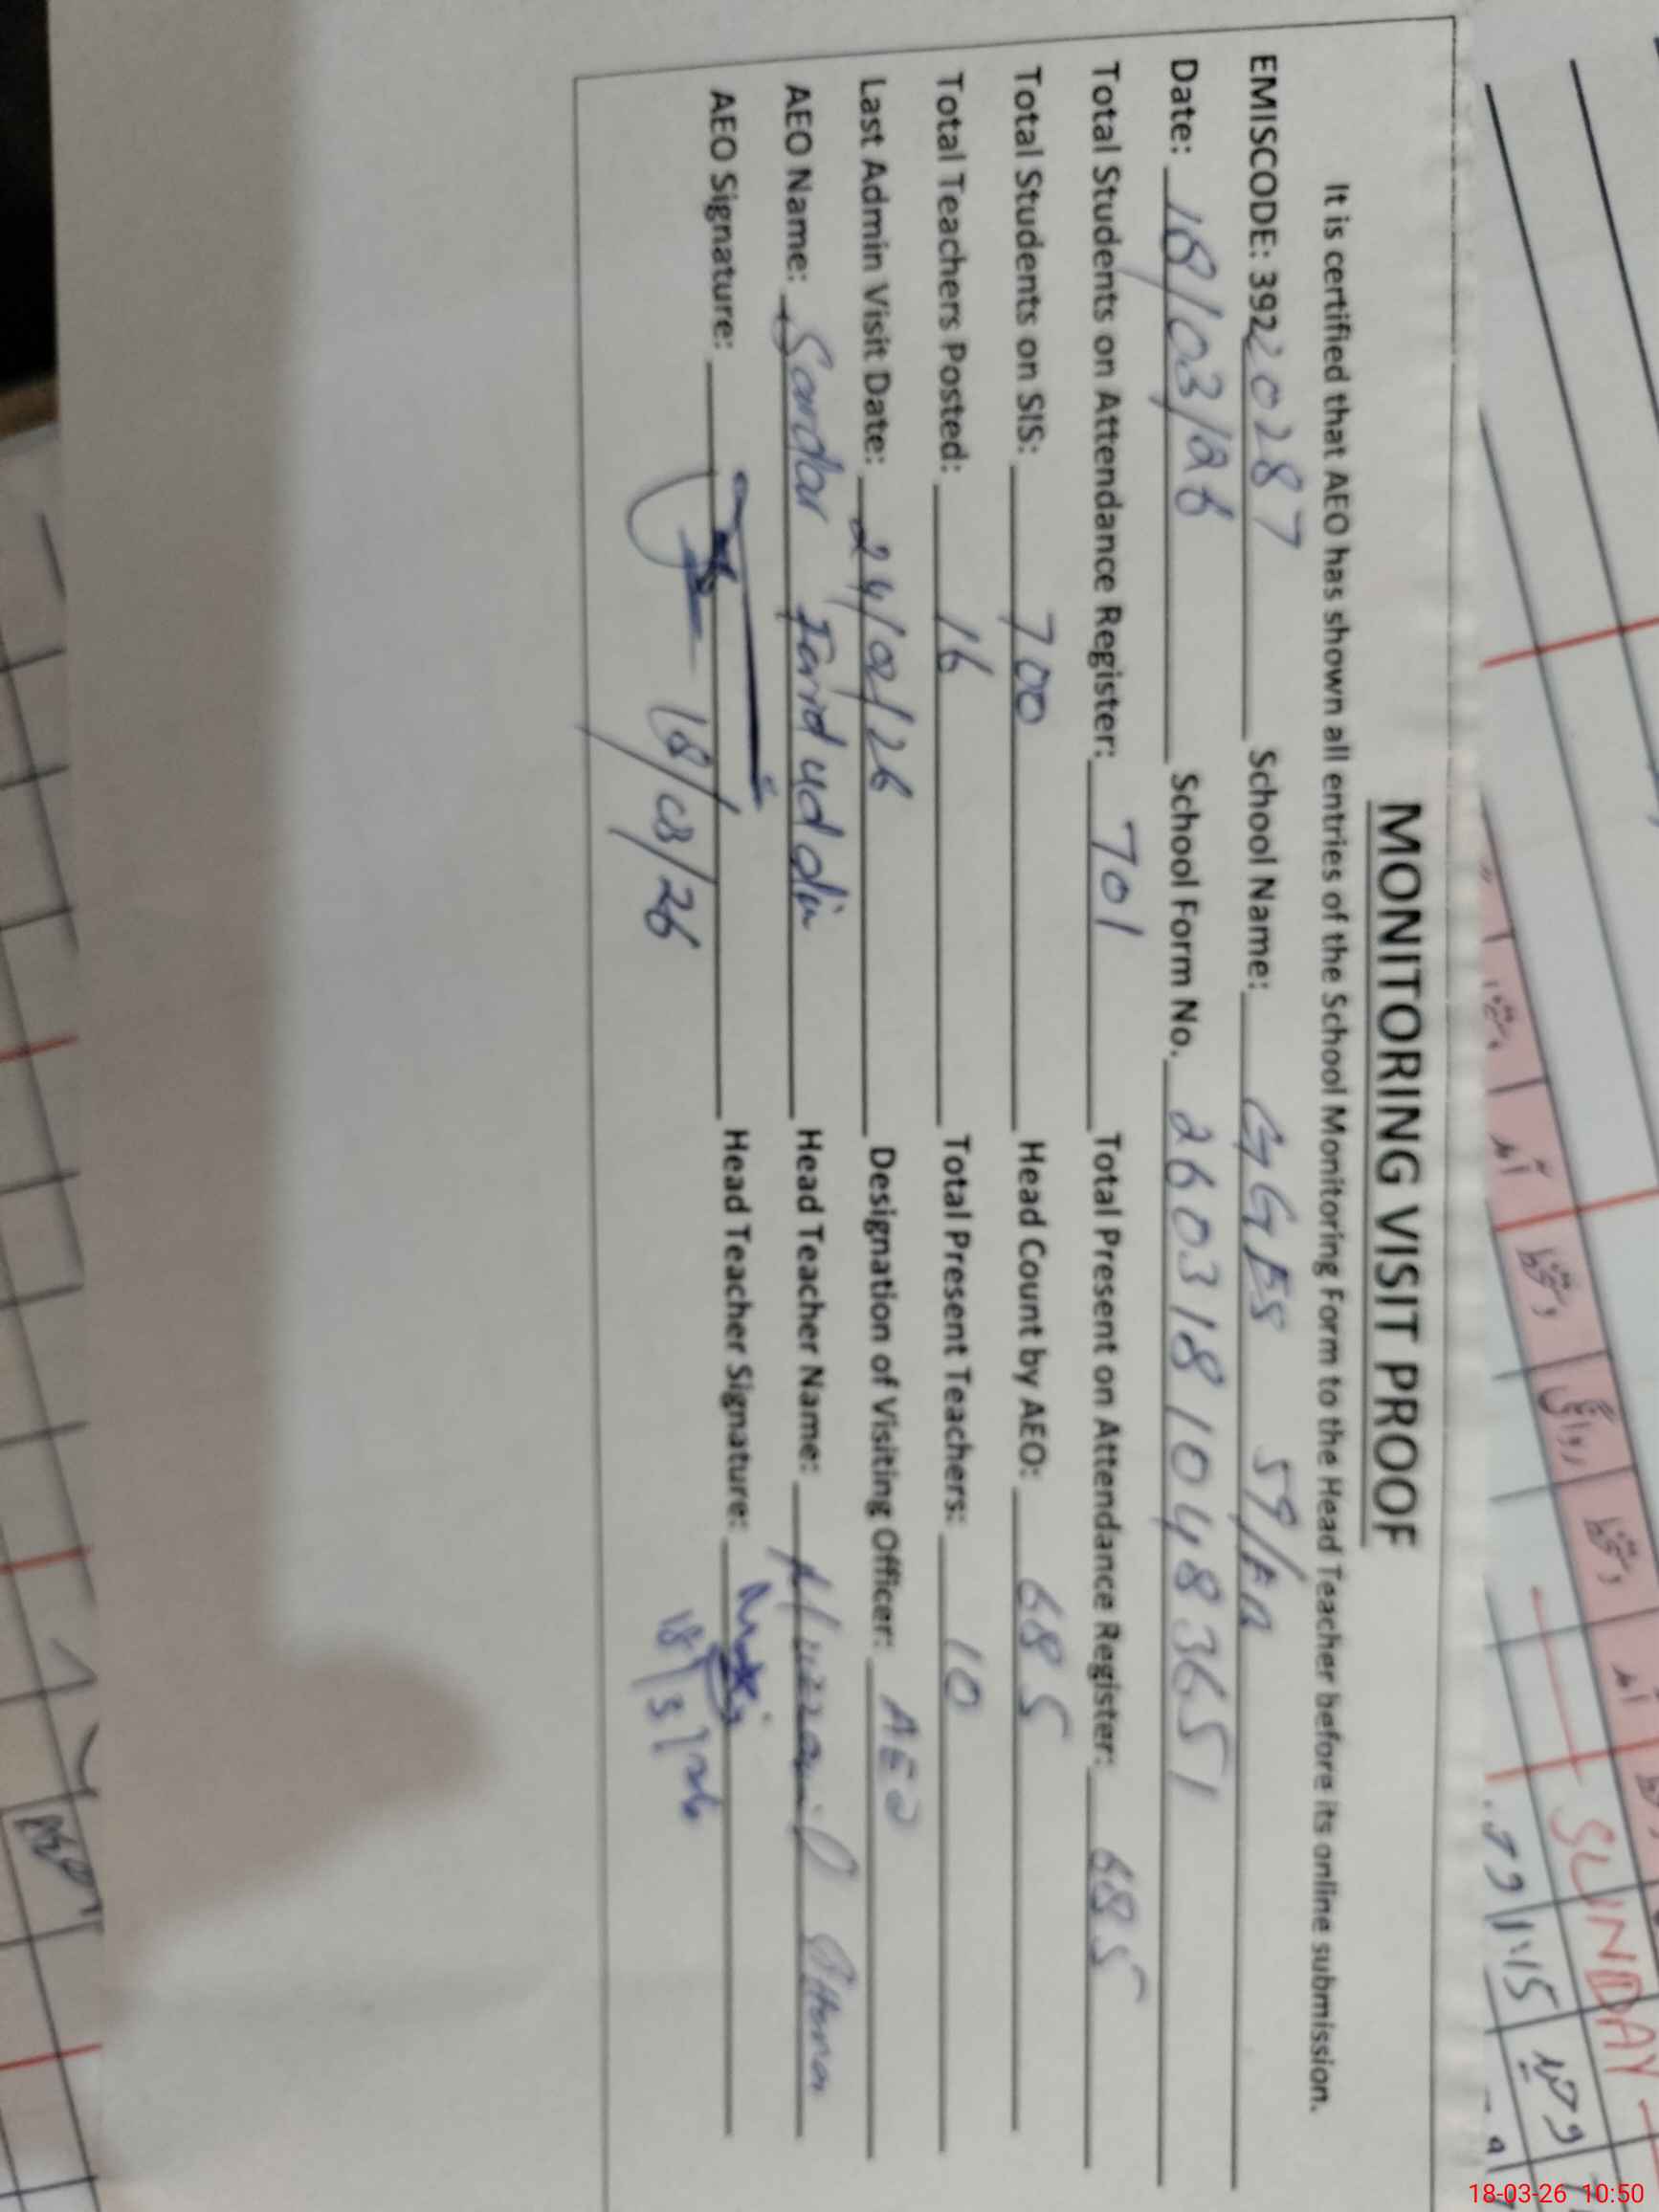 MONITORING VISIT PROOF
It is certified that AEO has shown all entries of the School Monitoring Form to the Head Teacher before its online submission.
EMISCODE: 39220287 School Name: GGES 59/
Date: 18/03/26 School Form No. 26031810483651
Total Students on Attendance Register: 701 Total Present on Attendance Register: 685
Total Students on SIS: 700 Head Count by AEO: 685
Total Teachers Posted: 16 Total Present Teachers: 10
Last Admin Visit Date: 24/02/26 Designation of Visiting Officer: AEO
AEO Name: Sardar Farid ud din Head Teacher Name:
AEO Signature: 18/03/26 Head Teacher Signature: 18/3/26
SUNDAY
18-03-26 10:50